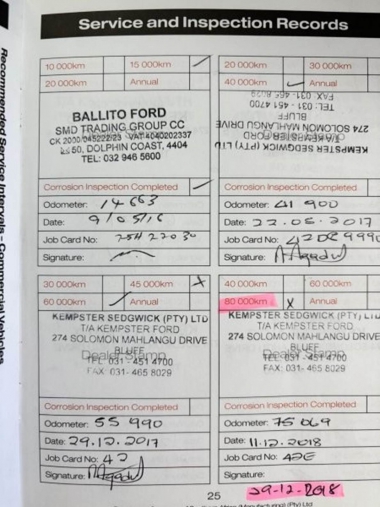 Service and Inspection Records
Recommended Service Intervals - Commercial Vehicles
10 000km 15 000km
20 000km Annual
BALLITO FORD
SMD TRADING GROUP CC
CK 2000/045222/23 VAT:4040202337
60, DOLPHIN COAST, 4404
TEL: 032 946 5600
Corrosion Inspection Completed
Odometer: 14663
Date: 9/05/16
Job Card No:
Signature:
20 000km 30 000km
40 000km Annual
KEMPSTER SEDGWICK (PTY) LTD
T/A KEMPSTER FORD
274 SOLOMON MAHLANGU DRIVE
BLUFF
TEL: 031 - 451 4700
FAX: 031- 465 8029
Corrosion Inspection Completed
Odometer: 41 900
Date: 22.06.2017
Job Card No:
Signature:
30 000km 45 000km X
60 000km Annual
KEMPSTER SEDGWICK (PTY) LTD
T/A KEMPSTER FORD
274 SOLOMON MAHLANGU DRIVE
BLUFF
Dealer Stamp
TEL: 031 - 451 4700
FAX: 031- 465 8029
Corrosion Inspection Completed
Odometer: 55 990
Date: 29.12.2017
Job Card No: 42
Signature:
40 000km 60 000km
80 000km X Annual
KEMPSTER SEDGWICK (PTY) LTD
T/A KEMPSTER FORD
274 SOLOMON MAHLANGU DRIVE
BLUFF
Dealer Stamp
TEL: 031 - 451 4700
FAX: 031- 465 8029
Corrosion Inspection Completed
Odometer: 75069
Date: 11.12.2018
Job Card No: 42E
Signature:
29-12-2018
25
(Pty) Ltd